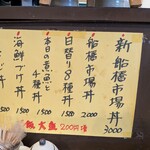 新船橋市場丼
3000
船橋市場丼
2000
日替り8種丼
1500
本日の煮魚と
4種丼
1500
海鮮づけ丼
1500
丼
500
大盛 200円増